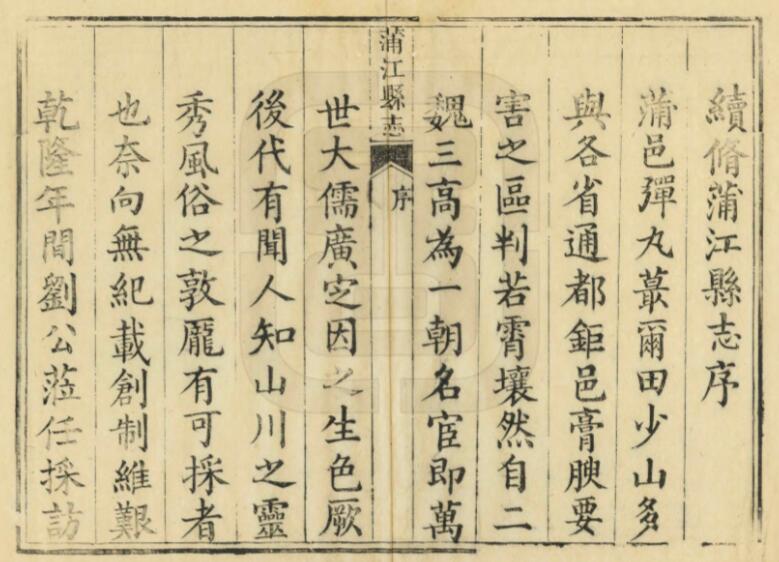 續脩蒲江縣志序
蒲邑彈丸蕞爾田少山多
與各省通都鉅邑膏腴要
害之區判若霄壤然自二
魏三高為一朝名宦即萬
蒲江縣志
序
世大儒廣定因之生色厥
後代有聞人知山川之靈
秀風俗之敦龎有可採者
也奈向無紀載創制維艱
乾隆年間劉公蒞任採訪